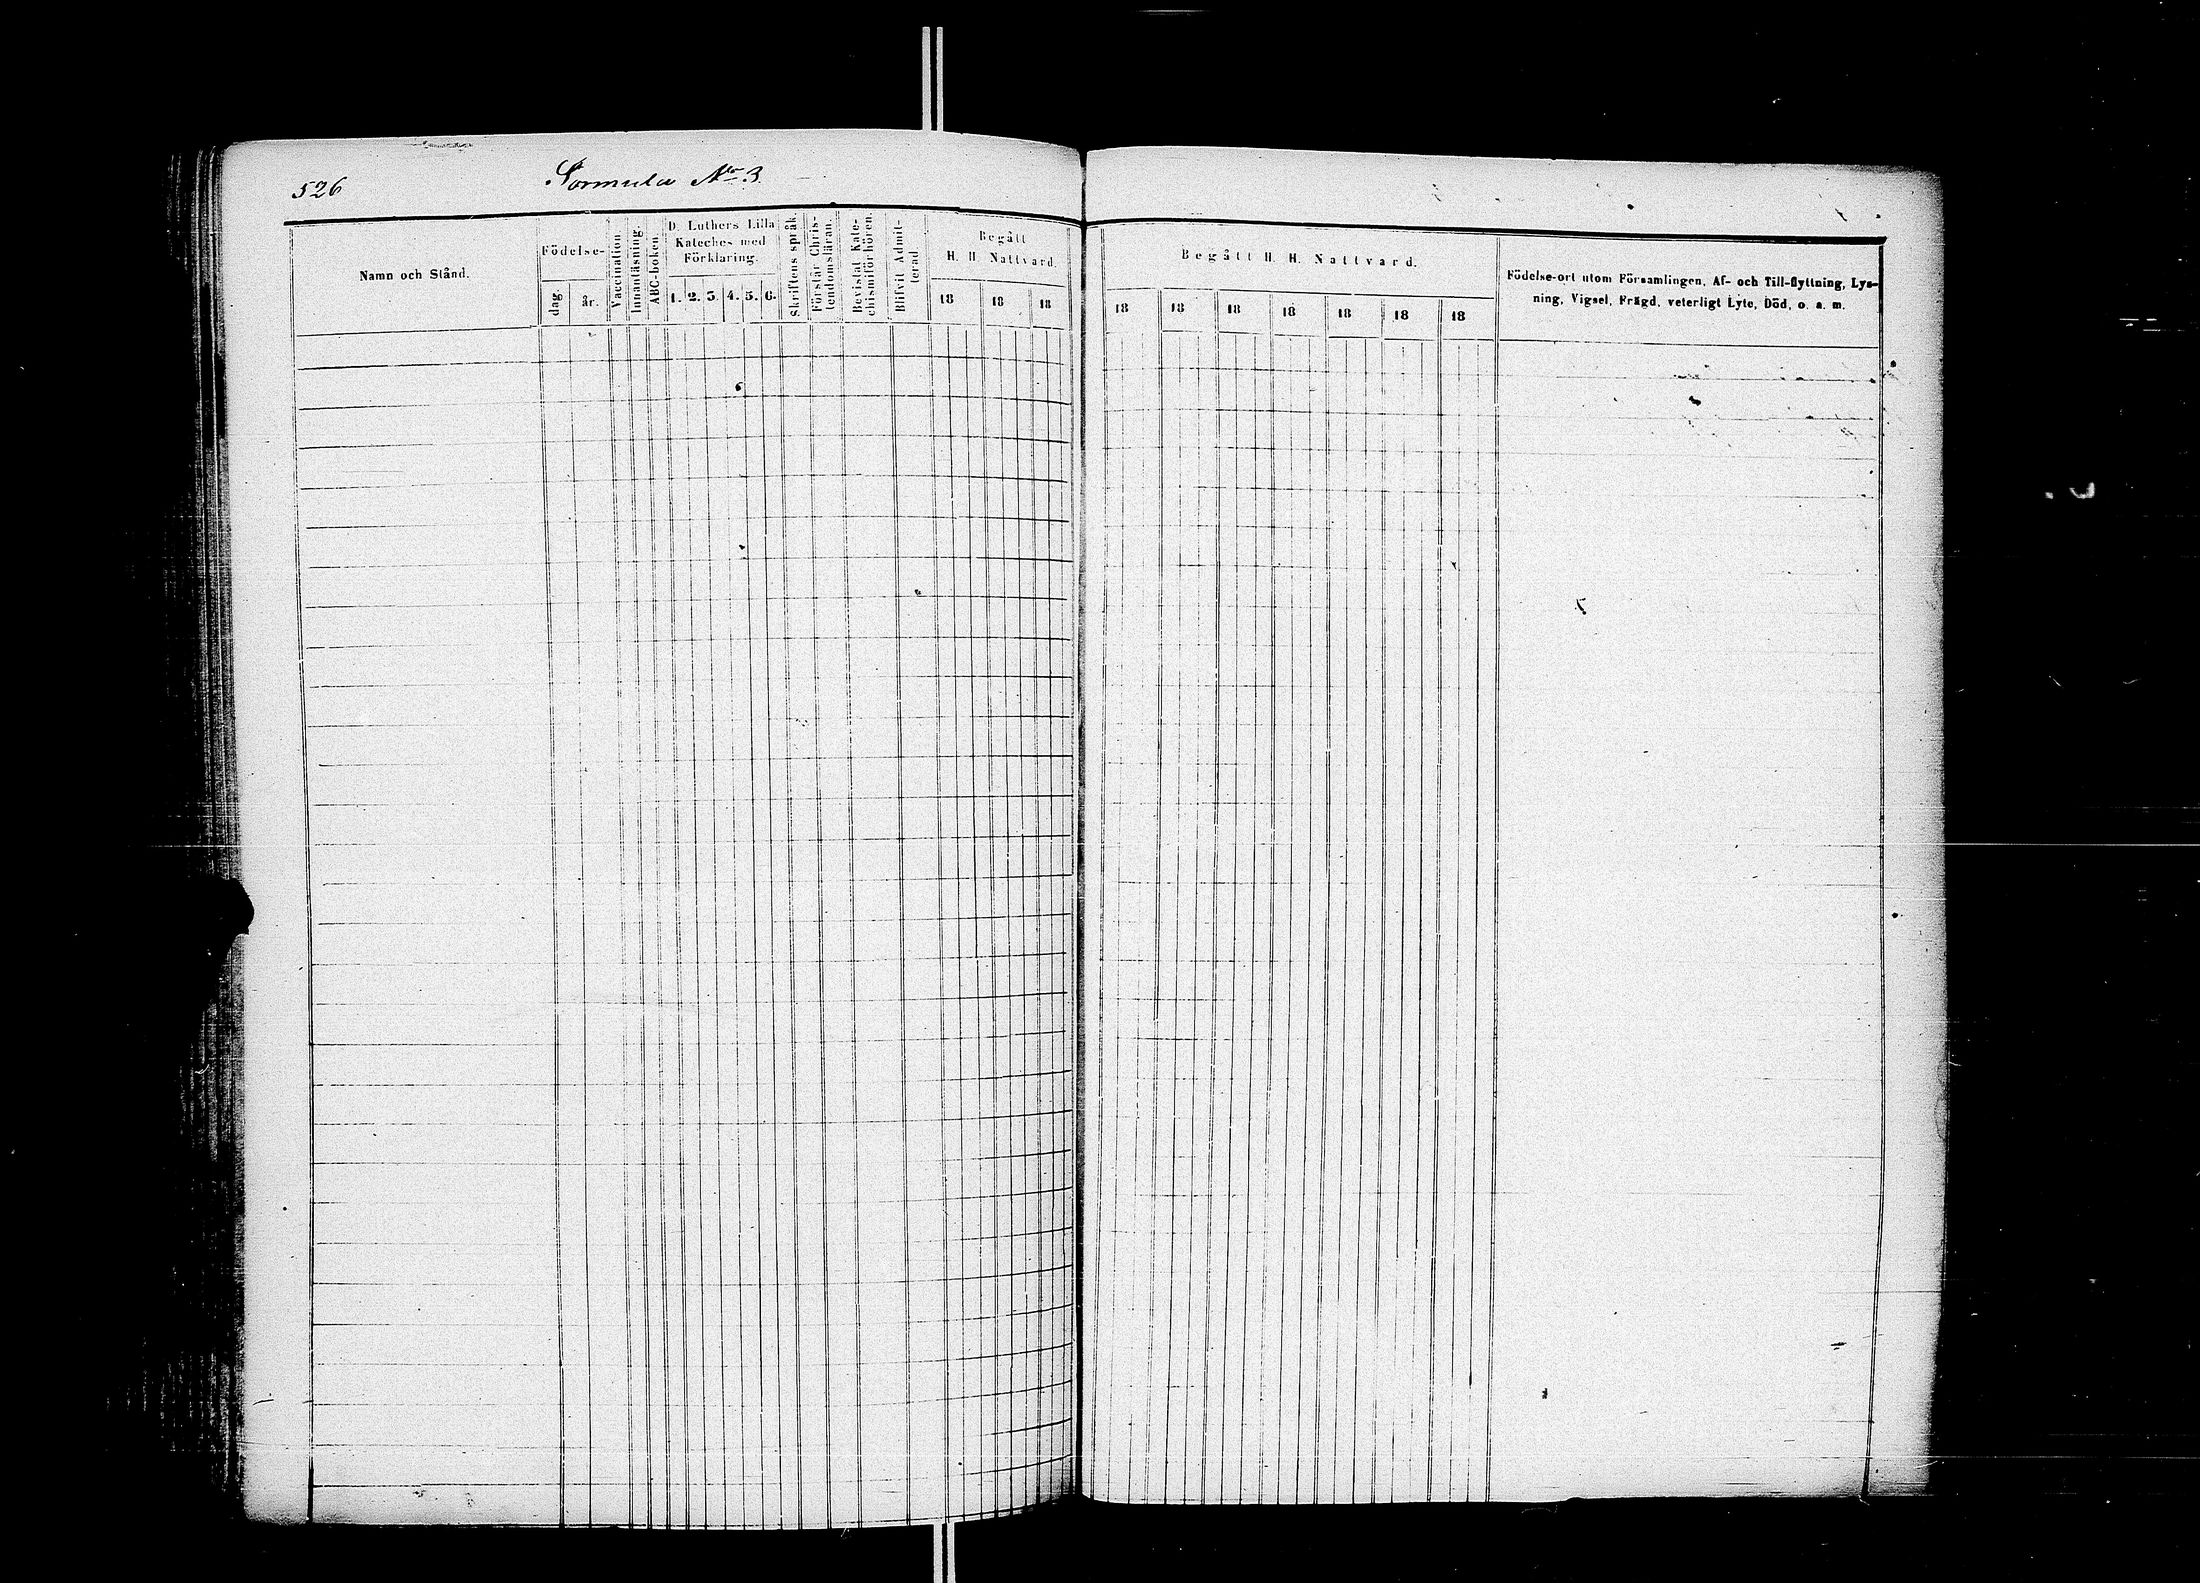 526
Sormula No 3
Namn och Stånd.
Födelse-
dag
år.
Vaccination.
Innanläsning.
ABC-boken.
D. Luthers Lilla
Kateches med
Förklaring.
1. 2. 3. 4. 5. 6.
Skriftens språk.
Förstår Chris-
tendomsläran.
Bevistat Kate-
chismiförhören.
Blifvit Admit-
terad.
Begått
H. H. Nattvard.
18 18 18
Begått H. H. Nattvard.
18 18 18 18 18 18 18
Födelse-ort utom Församlingen, Af- och Till-flyttning, Lys-
ning, Vigsel, Frägd, veterligt Lyte, Död, o. a. m.